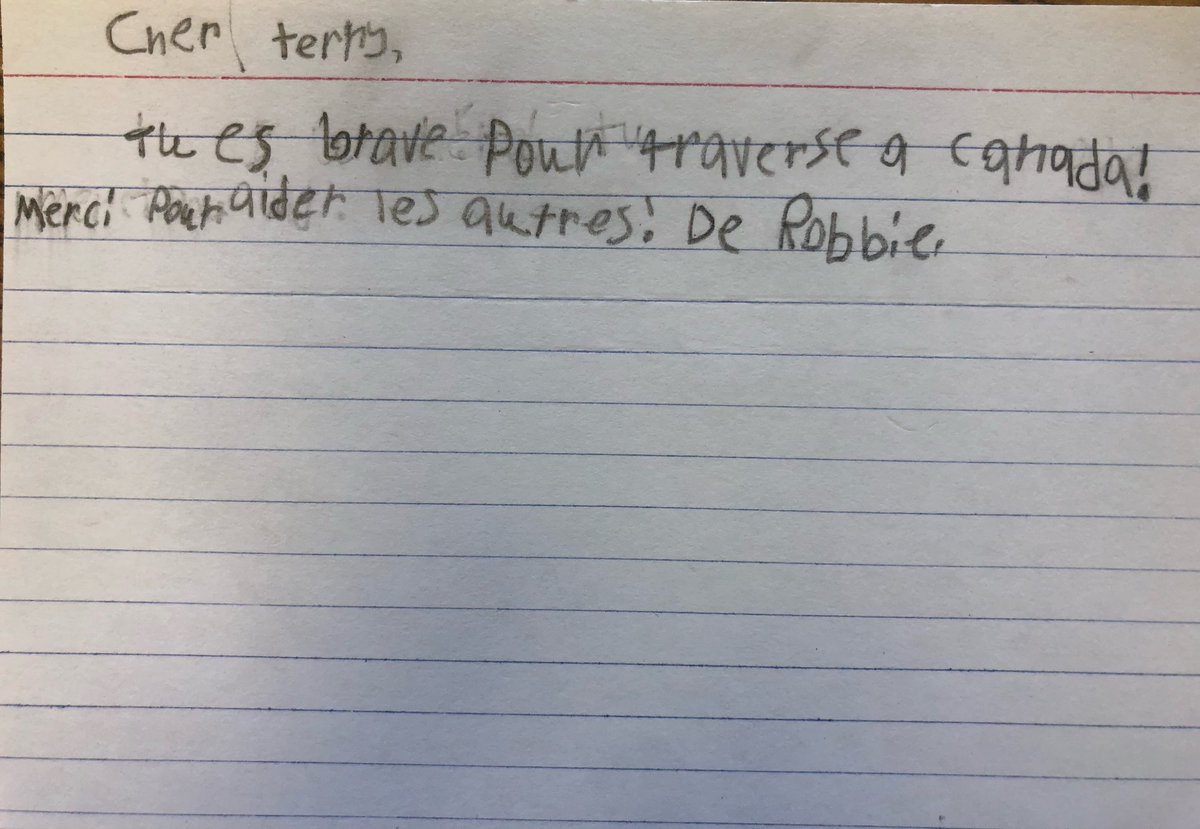 Cher terry,
tu es brave Pour traverse a canada!
Merci Pour aider les autres! De Robbie.